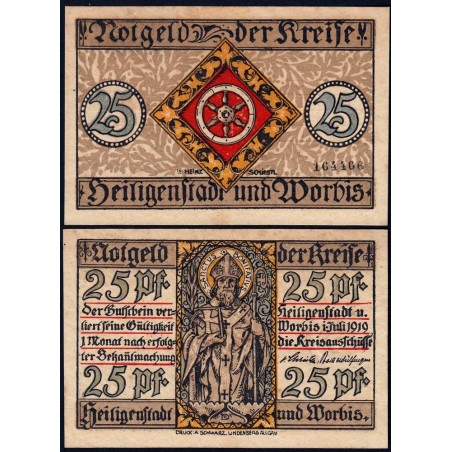 Notgeld der Kreise
25 25
HEINZ SCHIESTL
164466
Heiligenstadt und Worbis
Notgeld der Kreise
25 Pf. 25 Pf.
Der Gutschein ver-
liert seine Gültigkeit
1 Monat nach erfolg-
ter Bekanntmachung
Heiligenstadt u.
Worbis i. Juli 1919
die Kreisausschüsse
25 Pf. 25 Pf.
Heiligenstadt und Worbis.
DRUCK: A. SCHWARZ, LINDENBERG ALLGÄU